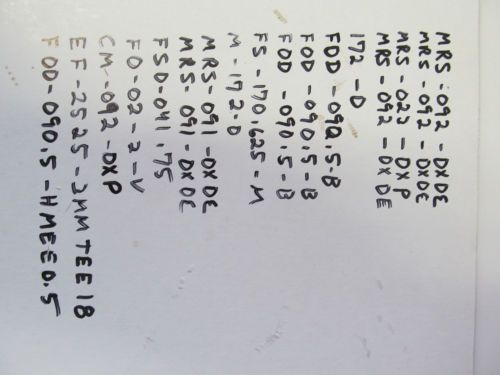 MRS-092-DXDE
MRS-092-DXDE
MRS-022-DXP
MRS-092-DXDE
172-D
FDD-092.5-B
FOD-090.5-B
FOD-090.5-B
FS-170.625-M
M-172.D
MRS-091-DXDE
MRS-091-DXDE
FSD-041.75
FO-02-2-V
CM-092-DXP
EF-2525-2MMTEE18
FOD-090.5-HMEE0.5